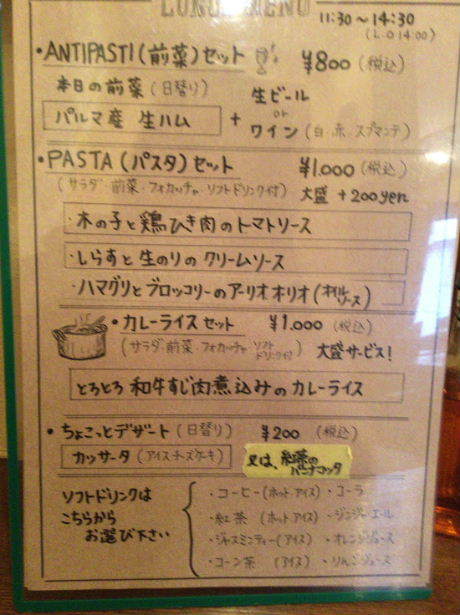 LUNCH MENU
11:30〜14:30
(L.O 14:00)
・ANTIPASTI(前菜)セット ¥800 (税込)
本日の前菜 (日替り)
パルマ産 生ハム
+
生ビール
or
ワイン (白・赤・スプマンテ)
・PASTA(パスタ)セット ¥1.000 (税込)
(サラダ・前菜・フォカッチャ・ソフトドリンク付) 大盛 +200yen
・木の子と鶏ひき肉のトマトソース
・しらすと生のりのクリームソース
・ハマグリとブロッコリーのアーリオオリオ(オイルソース)
・カレーライスセット ¥1.000 (税込)
(サラダ・前菜・フォカッチャ・ソフトドリンク付) 大盛サービス!
とろとろ和牛すじ肉煮込みのカレーライス
・ちょこっとデザート (日替り) ¥200 (税込)
カッサータ (アイスチーズケーキ)
又は、紅茶のパンナコッタ
ソフトドリンクは
こちらから
お選び下さい
・コーヒー(ホット・アイス) ・コーラ
・紅茶 (ホット・アイス) ・ジンジャーエール
・ジャスミンティー(アイス) ・オレンジジュース
・コーン茶 (アイス) ・りんごジュース